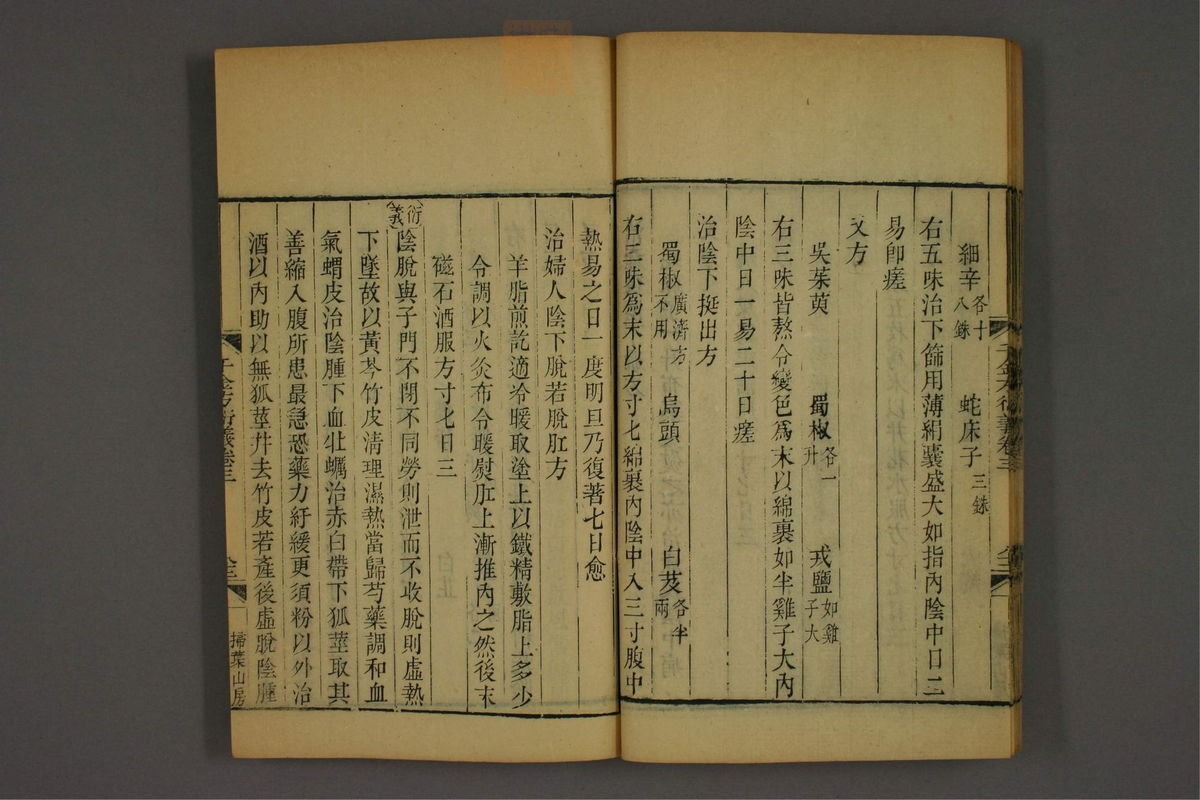 細辛各十八銖　蛇床子三銖
右五味治下篩用薄絹囊盛大如指內陰中日二
易卽瘥
又方
吳茱萸　蜀椒各一升　戎鹽如雞子大
右三味皆熬令變色爲末以綿裹如半雞子大內
陰中日一易二十日瘥
治陰下挺出方
蜀椒廣濟方不用　烏頭　白芨各半兩
右三味爲末以方寸七綿裹內陰中入三寸腹中
熱易之日一度明旦乃復著七日愈
治婦人陰下脫若脫肛方
羊脂煎訖適冷暖取塗上以鐵精敷脂上多少
令調以火灸布令暖熨肛上漸推內之然後末
磁石酒服方寸七日三
衍義陰脫與子門不閉不同勞則泄而不收脫則虛熱
下墜故以黃芩竹皮清理濕熱當歸芍藥調和血
氣蝟皮治陰腫下血牡蠣治赤白帶下狐莖取其
善縮入腹所患最急恐藥力紆緩更須粉以外治
酒以內助以無狐莖幷去竹皮若產後虛脫陰腫
千金方衍義卷三
掃葉山房